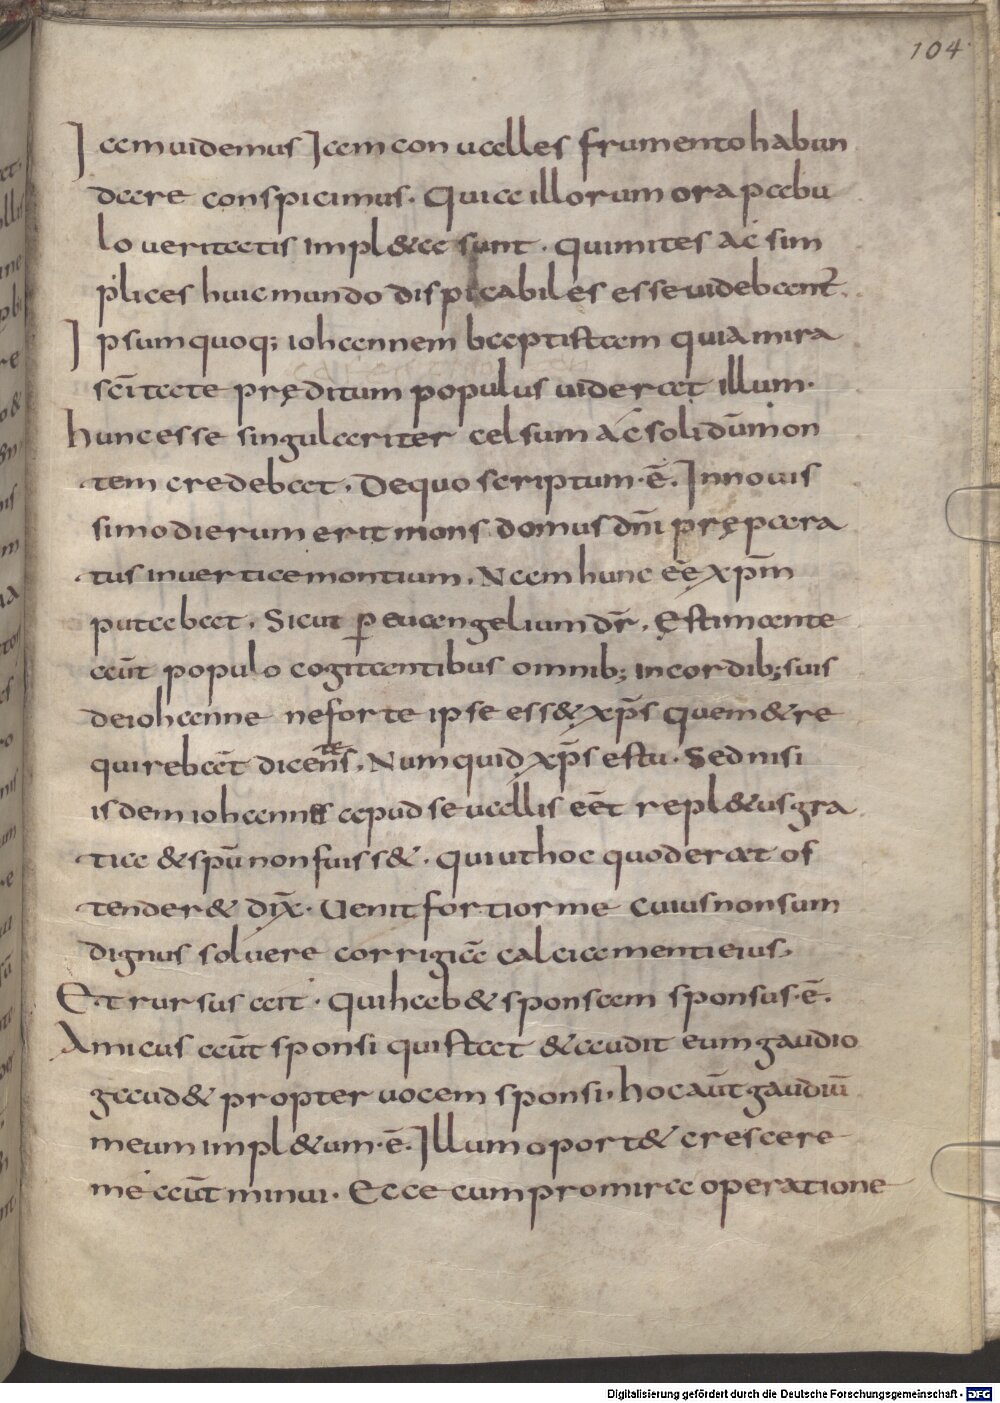 104
Iam uidemus Iam conualles frumento habun
dare conspicimus. Quia illorum ora pabu
lo ueritatis impl&a sunt. quimites ac sim
plices huic mundo dispicabiles esse uidebant̄.
Ipsum quoq; iohannem baptistam quia mira
sc̄itate pręditum populus uiderat illum.
hunc esse singulariter celsum ac solidū mon
tem credebat. De quo scriptum·ē. In nouis
simo dierum erit mons domus dn̄i prępara
tus in uertice montium. Nam hunc eē xp̄m
putabat. Sicut ꝑ euangelium dr̄. Ęstimante
aūt populo cogitantibus omnib; in cordib; suis
de iohanne ne forte ipse ess& xp̄s quem & re
quirebāt dicentes. Numquid xp̄s es tu. Sed nisi
isdem iohannes apud se uallis eēt repl&us gra
tia & sp̄u non fuiss&. qui ut hoc quod erat os
tender& dix̄. Uenit fortior me cuius non sum
dignus soluere corrigiā calciamenti eius.
Et rursus ait. Qui hab& sponsam sponsus·ē.
Amicus aūt sponsi qui stat & audit eum gaudio
gaud& propter uocem sponsi. hoc aūt gaudiū
meum impl&um·ē. Illum oport& crescere
me aūt minui. Ecce cum pro mira operatione
Digitalisierung gefördert durch die Deutsche Forschungsgemeinschaft - DFG